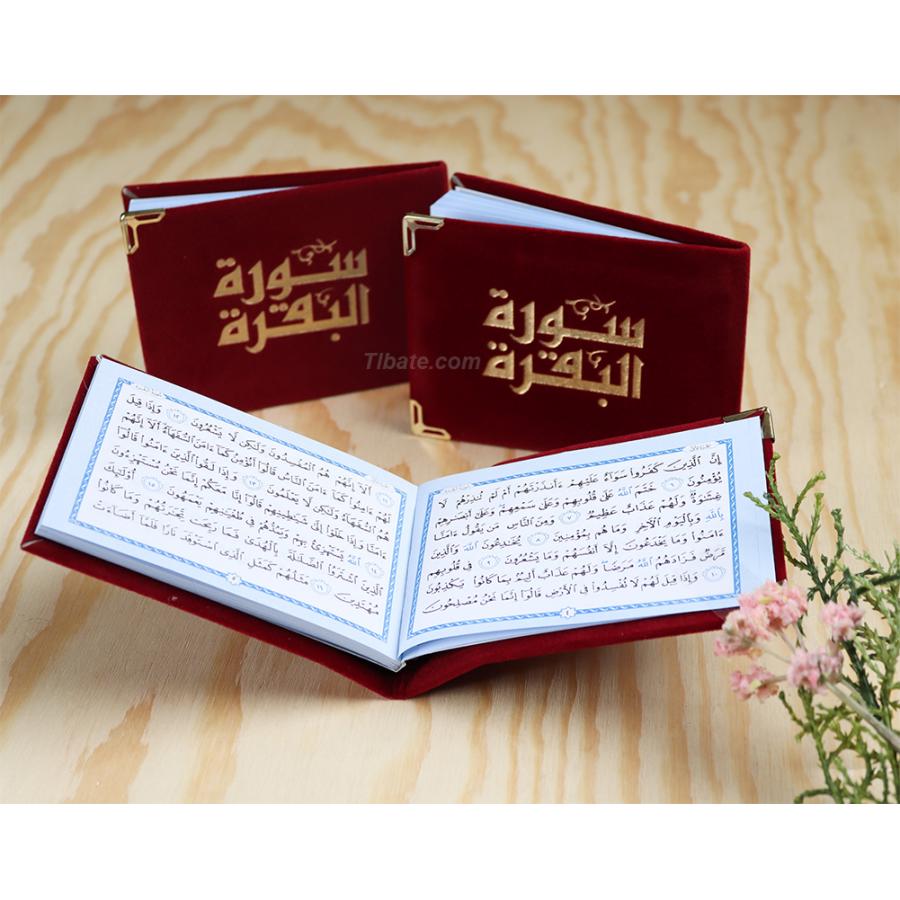 سورة
البقرة
سورة
البقرة
Tlbate.com
إِنَّ ٱلَّذِينَ كَفَرُوا۟ سَوَآءٌ عَلَيْهِمْ ءَأَنذَرْتَهُمْ أَمْ لَمْ تُنذِرْهُمْ لَا
يُؤْمِنُونَ ٦ خَتَمَ ٱللَّهُ عَلَىٰ قُلُوبِهِمْ وَعَلَىٰ سَمْعِهِمْ ۖ وَعَلَىٰٓ أَبْصَـٰرِهِمْ
غِشَـٰوَةٌ ۖ وَلَهُمْ عَذَابٌ عَظِيمٌ ٧ وَمِنَ ٱلنَّاسِ مَن يَقُولُ ءَامَنَّا
بِٱللَّهِ وَبِٱلْيَوْمِ ٱلْـَٔاخِرِ وَمَا هُم بِمُؤْمِنِينَ ٨ يُخَـٰدِعُونَ ٱللَّهَ وَٱلَّذِينَ
ءَامَنُوا۟ وَمَا يَخْدَعُونَ إِلَّآ أَنفُسَهُمْ وَمَا يَشْعُرُونَ ٩ فِى قُلُوبِهِم
مَّرَضٌ فَزَادَهُمُ ٱللَّهُ مَرَضًا ۖ وَلَهُمْ عَذَابٌ أَلِيمٌۢ بِمَا كَانُوا۟ يَكْذِبُونَ
١٠ وَإِذَا قِيلَ لَهُمْ لَا تُفْسِدُوا۟ فِى ٱلْأَرْضِ قَالُوٓا۟ إِنَّمَا نَحْنُ مُصْلِحُونَ
٤
١١ أَلَآ إِنَّهُمْ هُمُ ٱلْمُفْسِدُونَ وَلَـٰكِن لَّا يَشْعُرُونَ ١٢ وَإِذَا قِيلَ
لَهُمْ ءَامِنُوا۟ كَمَآ ءَامَنَ ٱلنَّاسُ قَالُوٓا۟ أَنُؤْمِنُ كَمَآ ءَامَنَ ٱلسُّفَهَآءُ ۗ أَلَآ إِنَّهُمْ
هُمُ ٱلسُّفَهَآءُ وَلَـٰكِن لَّا يَعْلَمُونَ ١٣ وَإِذَا لَقُوا۟ ٱلَّذِينَ ءَامَنُوا۟ قَالُوٓا۟
ءَامَنَّا وَإِذَا خَلَوْا۟ إِلَىٰ شَيَـٰطِينِهِمْ قَالُوٓا۟ إِنَّا مَعَكُمْ إِنَّمَا نَحْنُ مُسْتَهْزِءُونَ
١٤ ٱللَّهُ يَسْتَهْزِئُ بِهِمْ وَيَمُدُّهُمْ فِى طُغْيَـٰنِهِمْ يَعْمَهُونَ ١٥ أُو۟لَـٰٓئِكَ
ٱلَّذِينَ ٱشْتَرَوُا۟ ٱلضَّلَـٰلَةَ بِٱلْهُدَىٰ فَمَا رَبِحَت تِّجَـٰرَتُهُمْ وَمَا كَانُوا۟
مُهْتَدِينَ ١٦ مَثَلُهُمْ كَمَثَلِ ٱلَّذِى ٱسْتَوْقَدَ نَارًا فَلَمَّآ أَضَآءَتْ
٥